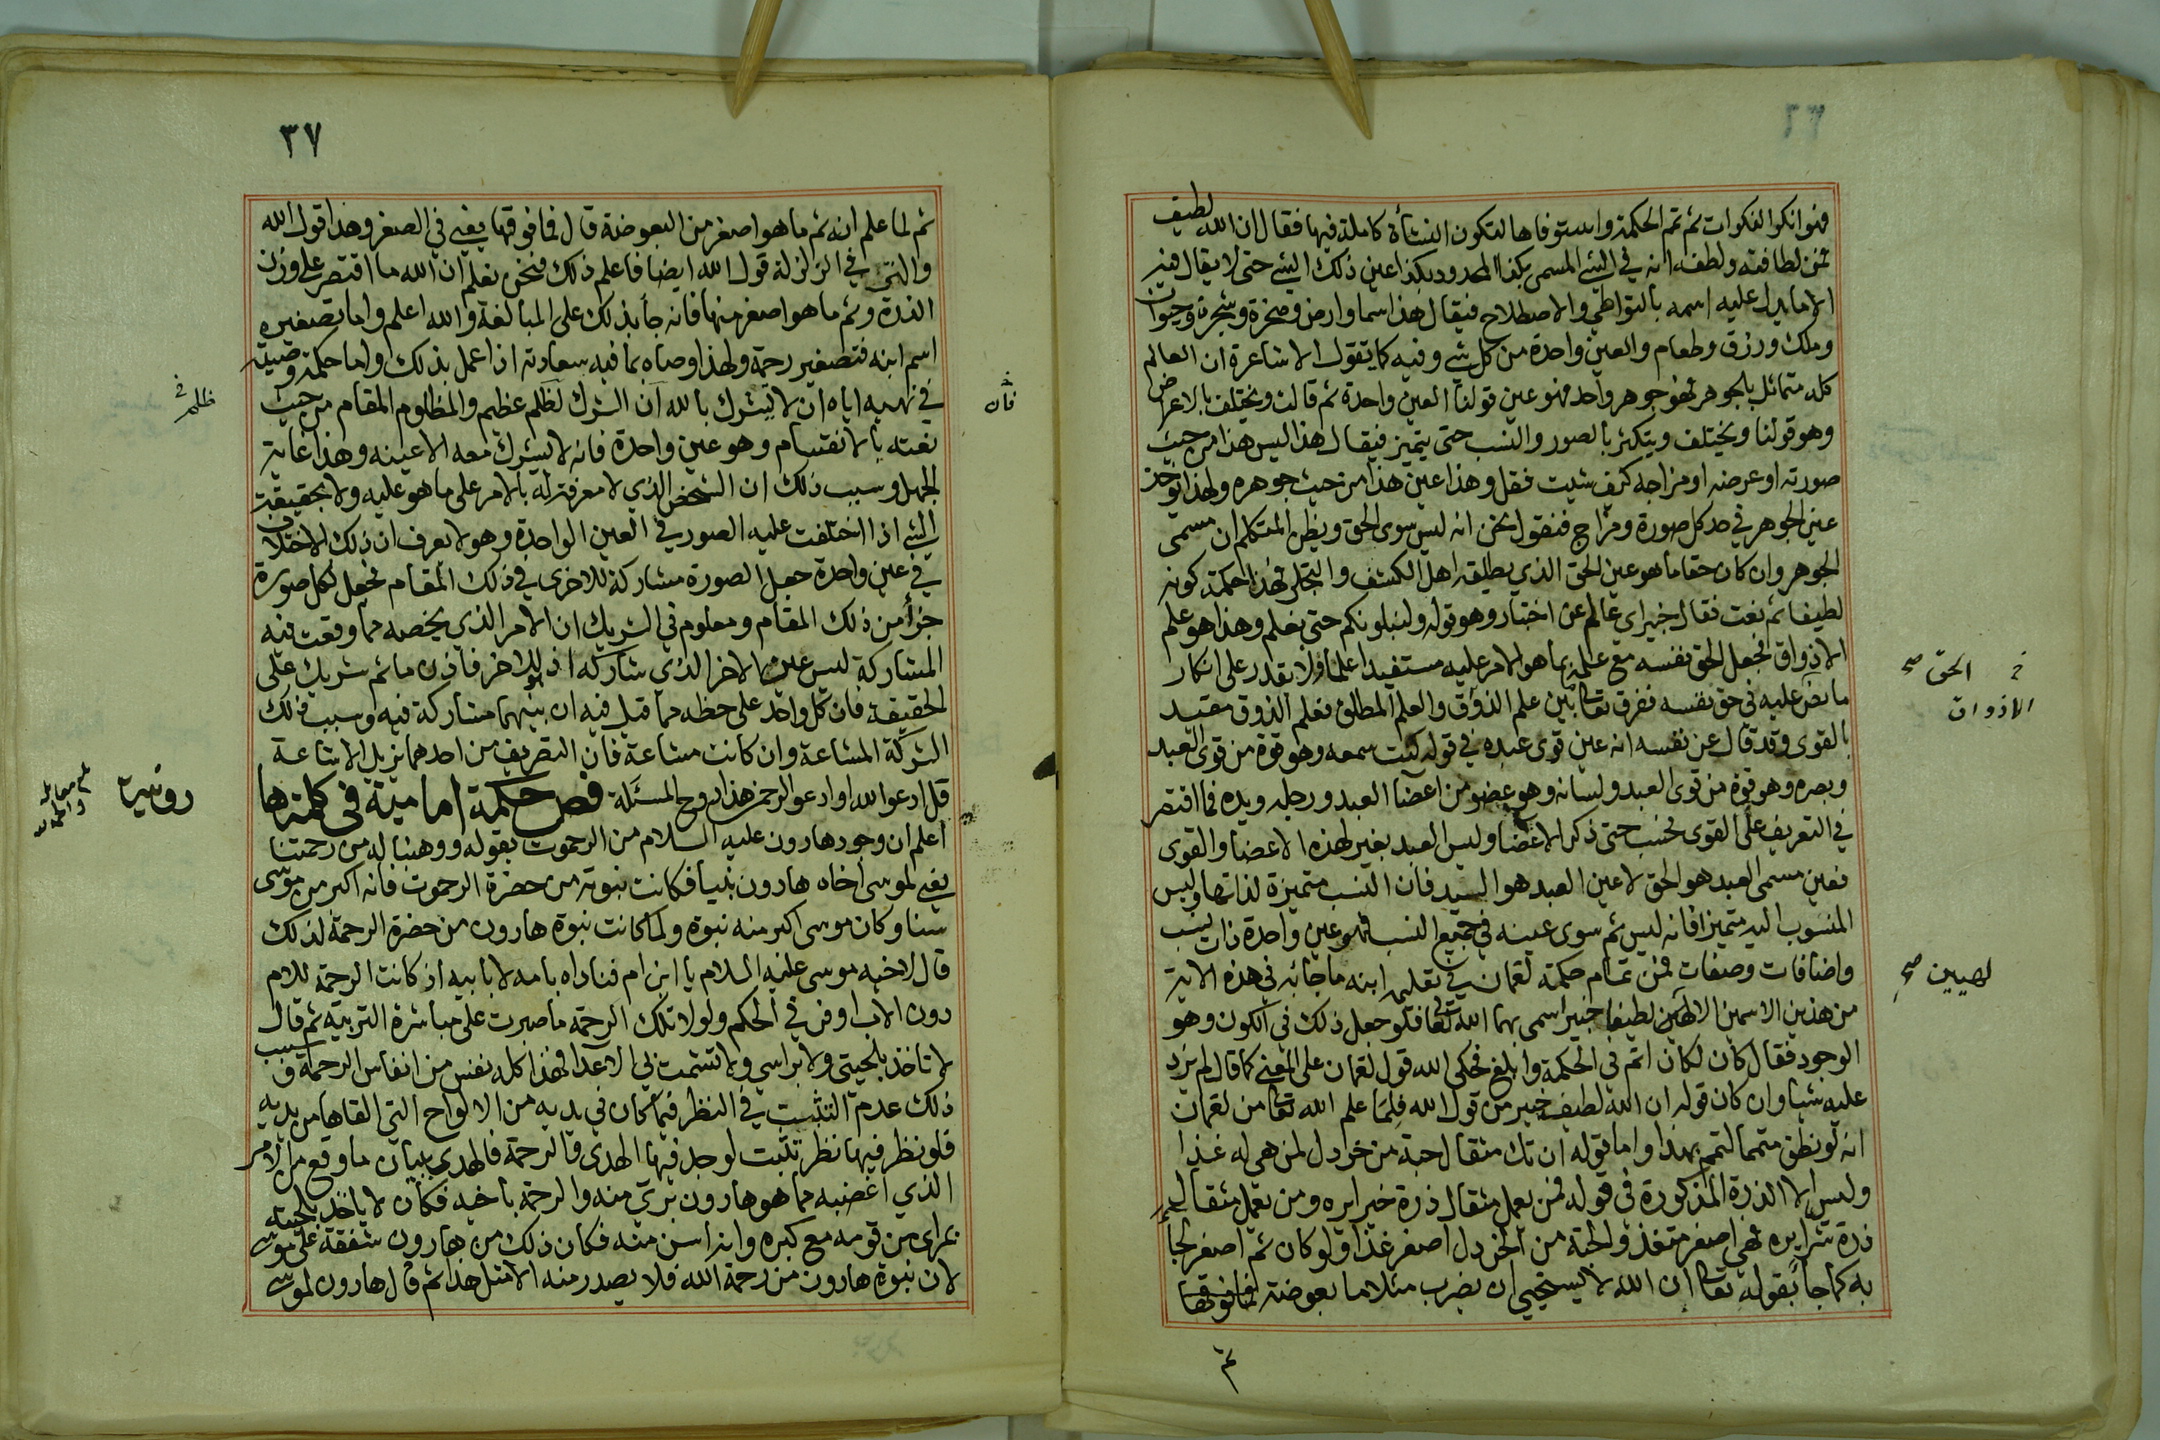 فهو انكر النكرات ثم تمم الحكمة واستوفاها لتكون النشأة كاملة فيها فقال ان الله لطيف
فمن لطافته ولطفه انه في الشئ المسمى بكذا المحدود بكذا عين ذلك الشئ حتى لا يقال فيه
الا ما يدل عليه اسمه بالتواطي والاصطلاح فيقال هذا سما وارض وصخرة وشجرة وحيوان
وملك ورزق وطعام والعين واحدة من كل شئ وفيه كما يقول الاشاعرة ان العالم
كله متماثل بالجوهر فهو جوهر واحد فهو عين قولنا العين واحدة ثم قالت ويختلف بالاعراض
وهو قولنا ويختلف ويتكثر بالصور والنسب حتى يتميز فيقال هذا ليس هذا من حيث
صورته او عرضه او مزاجه كيف شيت فقل وهذا عين هذا من حيث جوهره ولهذا يوخذ
عين الجوهر في حد كل صورة ومزاج فنقول نحن انه ليس سوى الحق ويظن المتكلم ان مسمى
الجوهر وان كان حقا ما هو عين الحق الذي يطلقه اهل الكشف والتجلى فهذا حكمة كونه
لطيفا ثم نعت فقال خبيرا اى عالم عن اختبار وهو قوله ولنبلونكم حتى نعلم وهذا هو علم
الاذواق فجعل الحق نفسه مع علمه بما هو الامر عليه مستفيدا علما ولا نقدر على انكار
ما نص عليه في حق نفسه ففرق تعالى بين علم الذوق والعلم المطلق فعلم الذوق مقيد
بالقوى وقد قال عن نفسه انه عين قوى عبده في قوله كنت سمعه وهو قوة من قوى العبد
وبصره وهو قوة من قوى العبد ولسانه وهو عضو من اعضا العبد ورجله ويده فما اقتصر
في التعريف على القوى فحسب حتى ذكر الاعضا وليس العبد بغير لهذه الاعضا والقوى
فعين مسمى العبد هو الحق لا عين العبد هو السيد فان النسب متميزة لذاتها وليس
المنسوب اليه متميزا فانه ليس ثم سوى عينه في جميع النسب فهو عين واحدة ذات نسب
واضافات وصفات فمن تمام حكمة لقمان في تعليمه ابنه ما جا به في هذه الاية
من هذين الاسمين الالهين لطيفا خبيرا سمى بهما الله تعالى فلو جعل ذلك في الكون وهو
الوجود فقال كان لكان اتم في الحكمة وابلغ فحكى الله قول لقمان على المعنى كما قال لم يزد
عليه شيا وان كان قوله ان الله لطيف خبير من قول الله فلما علم الله تعالى من لقمان
انه لو نطق متمما لتمم بهذا واما قوله ان تك مثقال حبة من خردل لمن هي له غذا
وليس الا الذرة المذكورة في قوله فمن يعمل مثقال ذرة خيرا يره ومن يعمل مثقال
ذرة شرا يره فهي اصغر متغذ والحبة من الخردل اصغر غذا ولو كان ثم اصغر لجا
به كما جا بقوله تعالى ان الله لا يستحيي ان يضرب مثلا ما بعوضة فما فوقها
ثم
الحق صح
الاذواق
لهيين صح
٣٧
ثم لما علم انه ثم ما هو اصغر من البعوضة قال فما فوقها يعني في الصغر وهذا قول الله
والتي في الزلزلة قول الله ايضا فاعلم ذلك فنحن نعلم ان الله ما اقتصر على وزن
الذرة وثم ما هو اصغر منها فانه جا بذلك على المبالغة والله اعلم واما تصغيره
اسم ابنه فتصغير رحمة ولهذا وصاه بما فيه سعادته اذا عمل بذلك واما حكمة وصيته
في نهيه اياه ان لا تشرك بالله ان الشرك لظلم عظيم والمظلوم المقام من حيث
نعته بالانقسام وهو عين واحدة فانه لا يشرك معه الا عينه وهذا غاية
الجهل وسبب ذلك ان الشخص الذي لا معرفة له بالامر على ما هو عليه ولا بحقيقة
الشئ اذا اختلفت عليه الصور في العين الواحدة وهو لا يعرف ان ذلك الاختلاف
في عين واحدة جعل الصورة مشاركة للاخرى في ذلك المقام فجعل لكل صورة
جزأ من ذلك المقام ومعلوم في الشريك ان الامر الذي يخصه مما وقعت فيه
المشاركة ليس عين الاخر الذي شاركه اذ هو للاخر فاذن ما ثم شريك على
الحقيقة فان كل واحد على حظه مما قيل فيه ان بينهما مشاركة فيه وسبب ذلك
الشركة المشاعة وان كانت مشاعة فان التصريف من احدهما يزيل الاشاعة
قل ادعوا الله او ادعوا الرحمن هذا روح المسئلة فص حكمة امامية في كلمة ها
رونية
اعلم ان وجود هارون عليه السلام من الرحموت بقوله ووهبنا له من رحمتنا
يعني لموسى اخاه هارون نبيا فكانت نبوته من حضرة الرحموت فانه اكبر من موسى
سنا وكان موسى اكبر منه نبوة ولما كانت نبوة هارون من حضرة الرحمة لذلك
قال لاخيه موسى عليه السلام يا ابن ام فناداه بامه لا بابيه اذ كانت الرحمة للام
دون الاب اوفر في الحكم ولولا تلك الرحمة ما صبرت على مباشرة التربية ثم قال
لا تاخذ بلحيتي ولا براسي ولا تشمت بي الاعدا فهذا كله نفس من انفاس الرحمة وسبب
ذلك عدم التثبت في النظر فيما كان في يديه من الالواح التي القاها من يديه
فلو نظر فيها نظر تثبت لوجد فيها الهدى والرحمة فالهدى بيان ما وقع من الامر
الذي اغضبه مما هو هارون بري منه والرحمة باخيه فكان لا ياخذ بلحيته
بمراى من قومه مع كبره وانه اسن منه فكان ذلك من هارون شفقة على موسى
لان نبوة هارون من رحمة الله فلا يصدر منه الا مثل هذا ثم قال هارون لموسى
ظلم
فان